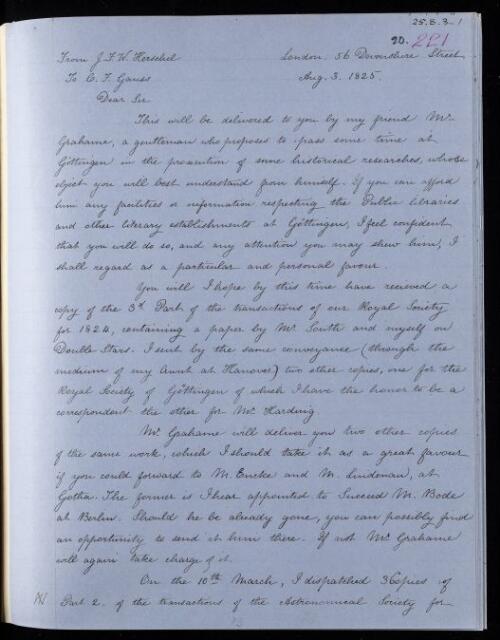 25.5.3.1
20. 221
From J.F.W. Herschel London. 56 Devonshire Street
To C. F. Gauss Aug. 3. 1825.
Dear Sir
This will be delivered to you by my friend Mr.
Grahame, a gentleman who proposes to pass some time at
Göttingen in the prosecution of some historical researches, whose
object you will best understand from himself. If you can afford
him any facilities or information respecting the Public libraries
and other literary establishments at Göttingen, I feel confident
that you will do so, and any attention you may shew him, I
shall regard as a particular and personal favour.
You will I hope by this time have received a
copy of the 3d Part of the transactions of our Royal Society
for 1824, containing a paper by Mr. South and myself on
Double Stars. I sent by the same conveyance (through the
medium of my Aunt at Hanover) two other copies, one for the
Royal Society of Göttingen of which I have the honor to be a
correspondent the other for Mr. Harding.
Mr. Grahame will deliver you two other copies
of the same work, which I should take it as a great favour
if you could forward to M. Encke and M. Lindenau, at
Gotha. The former is I hear appointed to Succeed M. Bode
at Berlin. Should he be already gone, you can possibly find
an opportunity to send it him there. If not Mr. Grahame
will again take charge of it.
On the 10th March, I dispatched 3 Copies of
Part 2. of the transactions of the Astronomical Society for